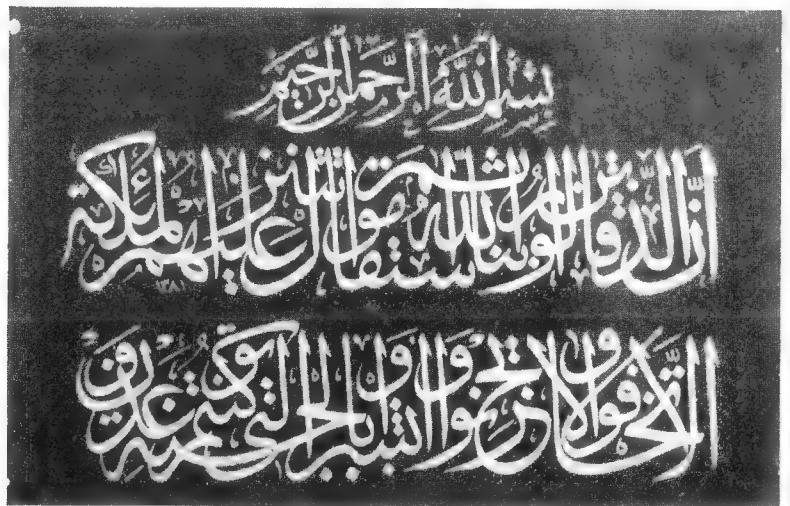 بسم الله الرحمن الرحيم
إن الذين قالوا ربنا الله ثم استقاموا تتنزل عليهم الملائكة
ألا تخافوا ولا تحزنوا وأبشروا بالجنة التي كنتم توعدون